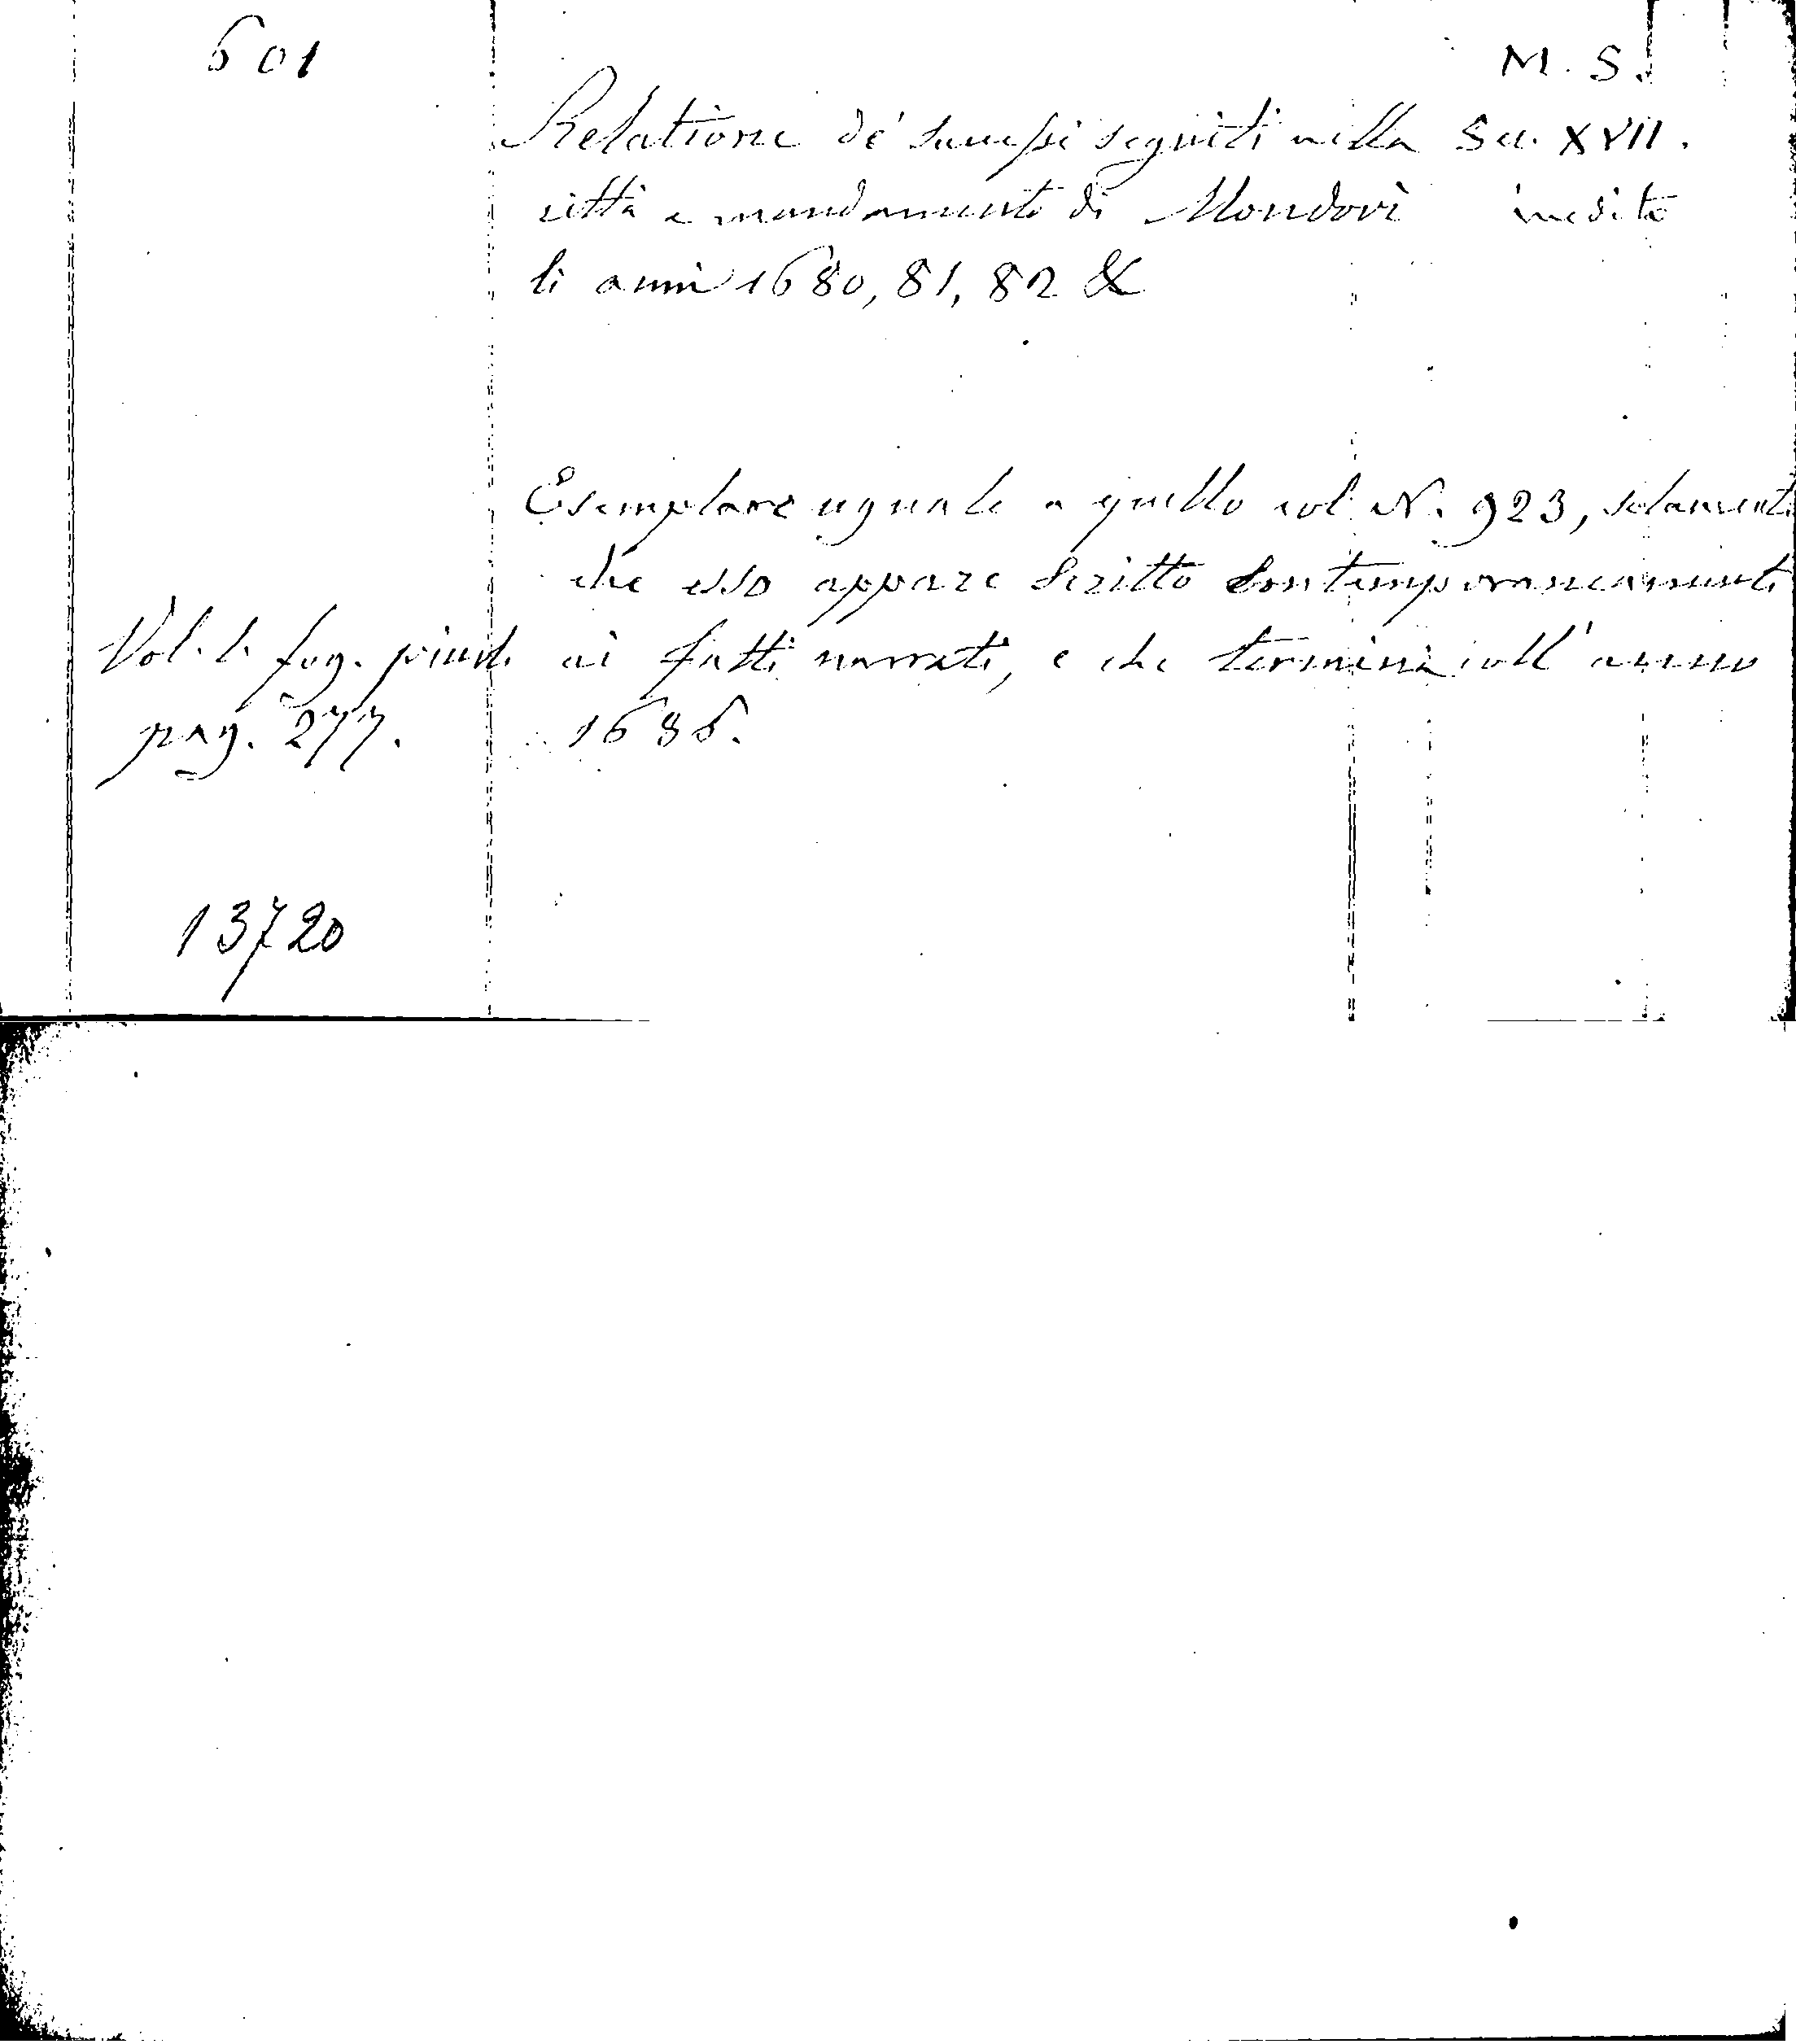 601
M. S.
Relatione de' sucessi seguiti nella Sec. XVII.
città e mandamento di Mondovì inedito
li anni 1680, 81, 82 &
Esemplare uguale a quello col N. 923, solamente
che esso appare scritto contemporaneamente
Vol. in fog. picciolo ai fatti narrati, e che termina coll'anno
pag. 277. 1686.
13720